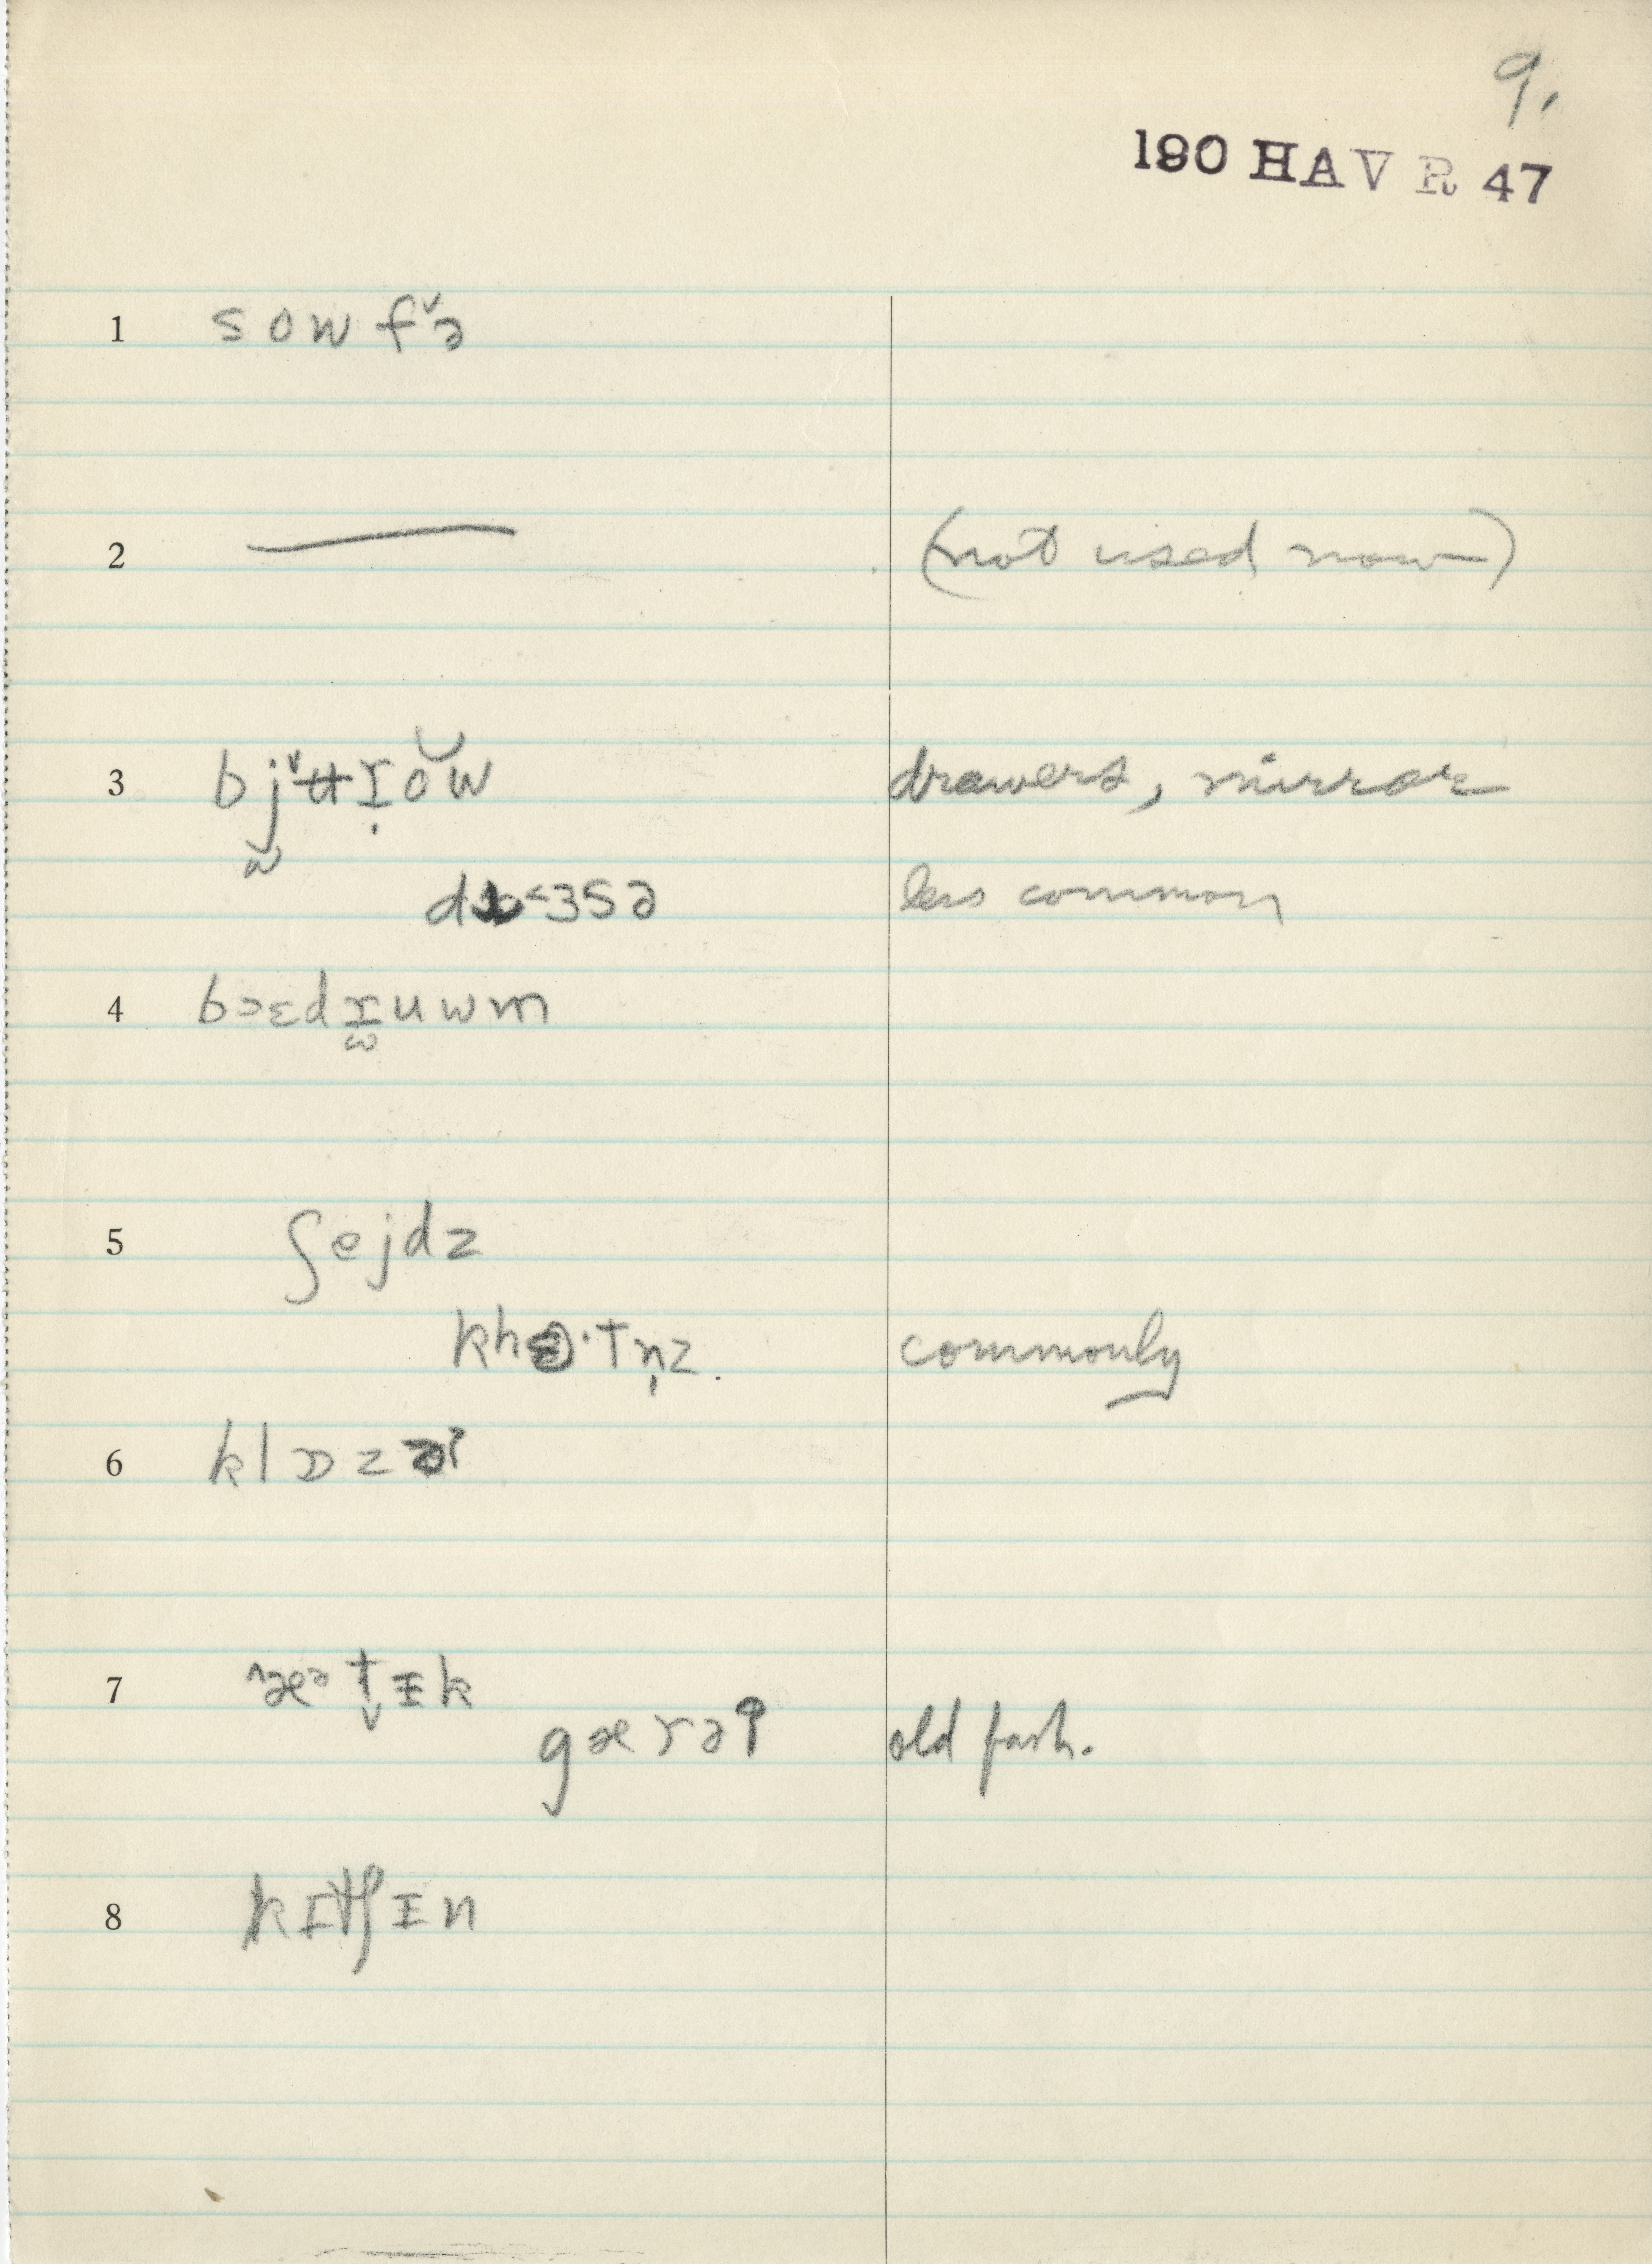 9.
190 HAV R 47
1 sowfˇə
2 — (not used now)
3 bjˇʉɪ̣ŏw drawers, mirror
less common
4 bɔɛdɪuwm
5 ʃejdz
commonly
6 klɒzə
7 æᵊtɪk
gærət old fash.
8 kɪtʃɪn